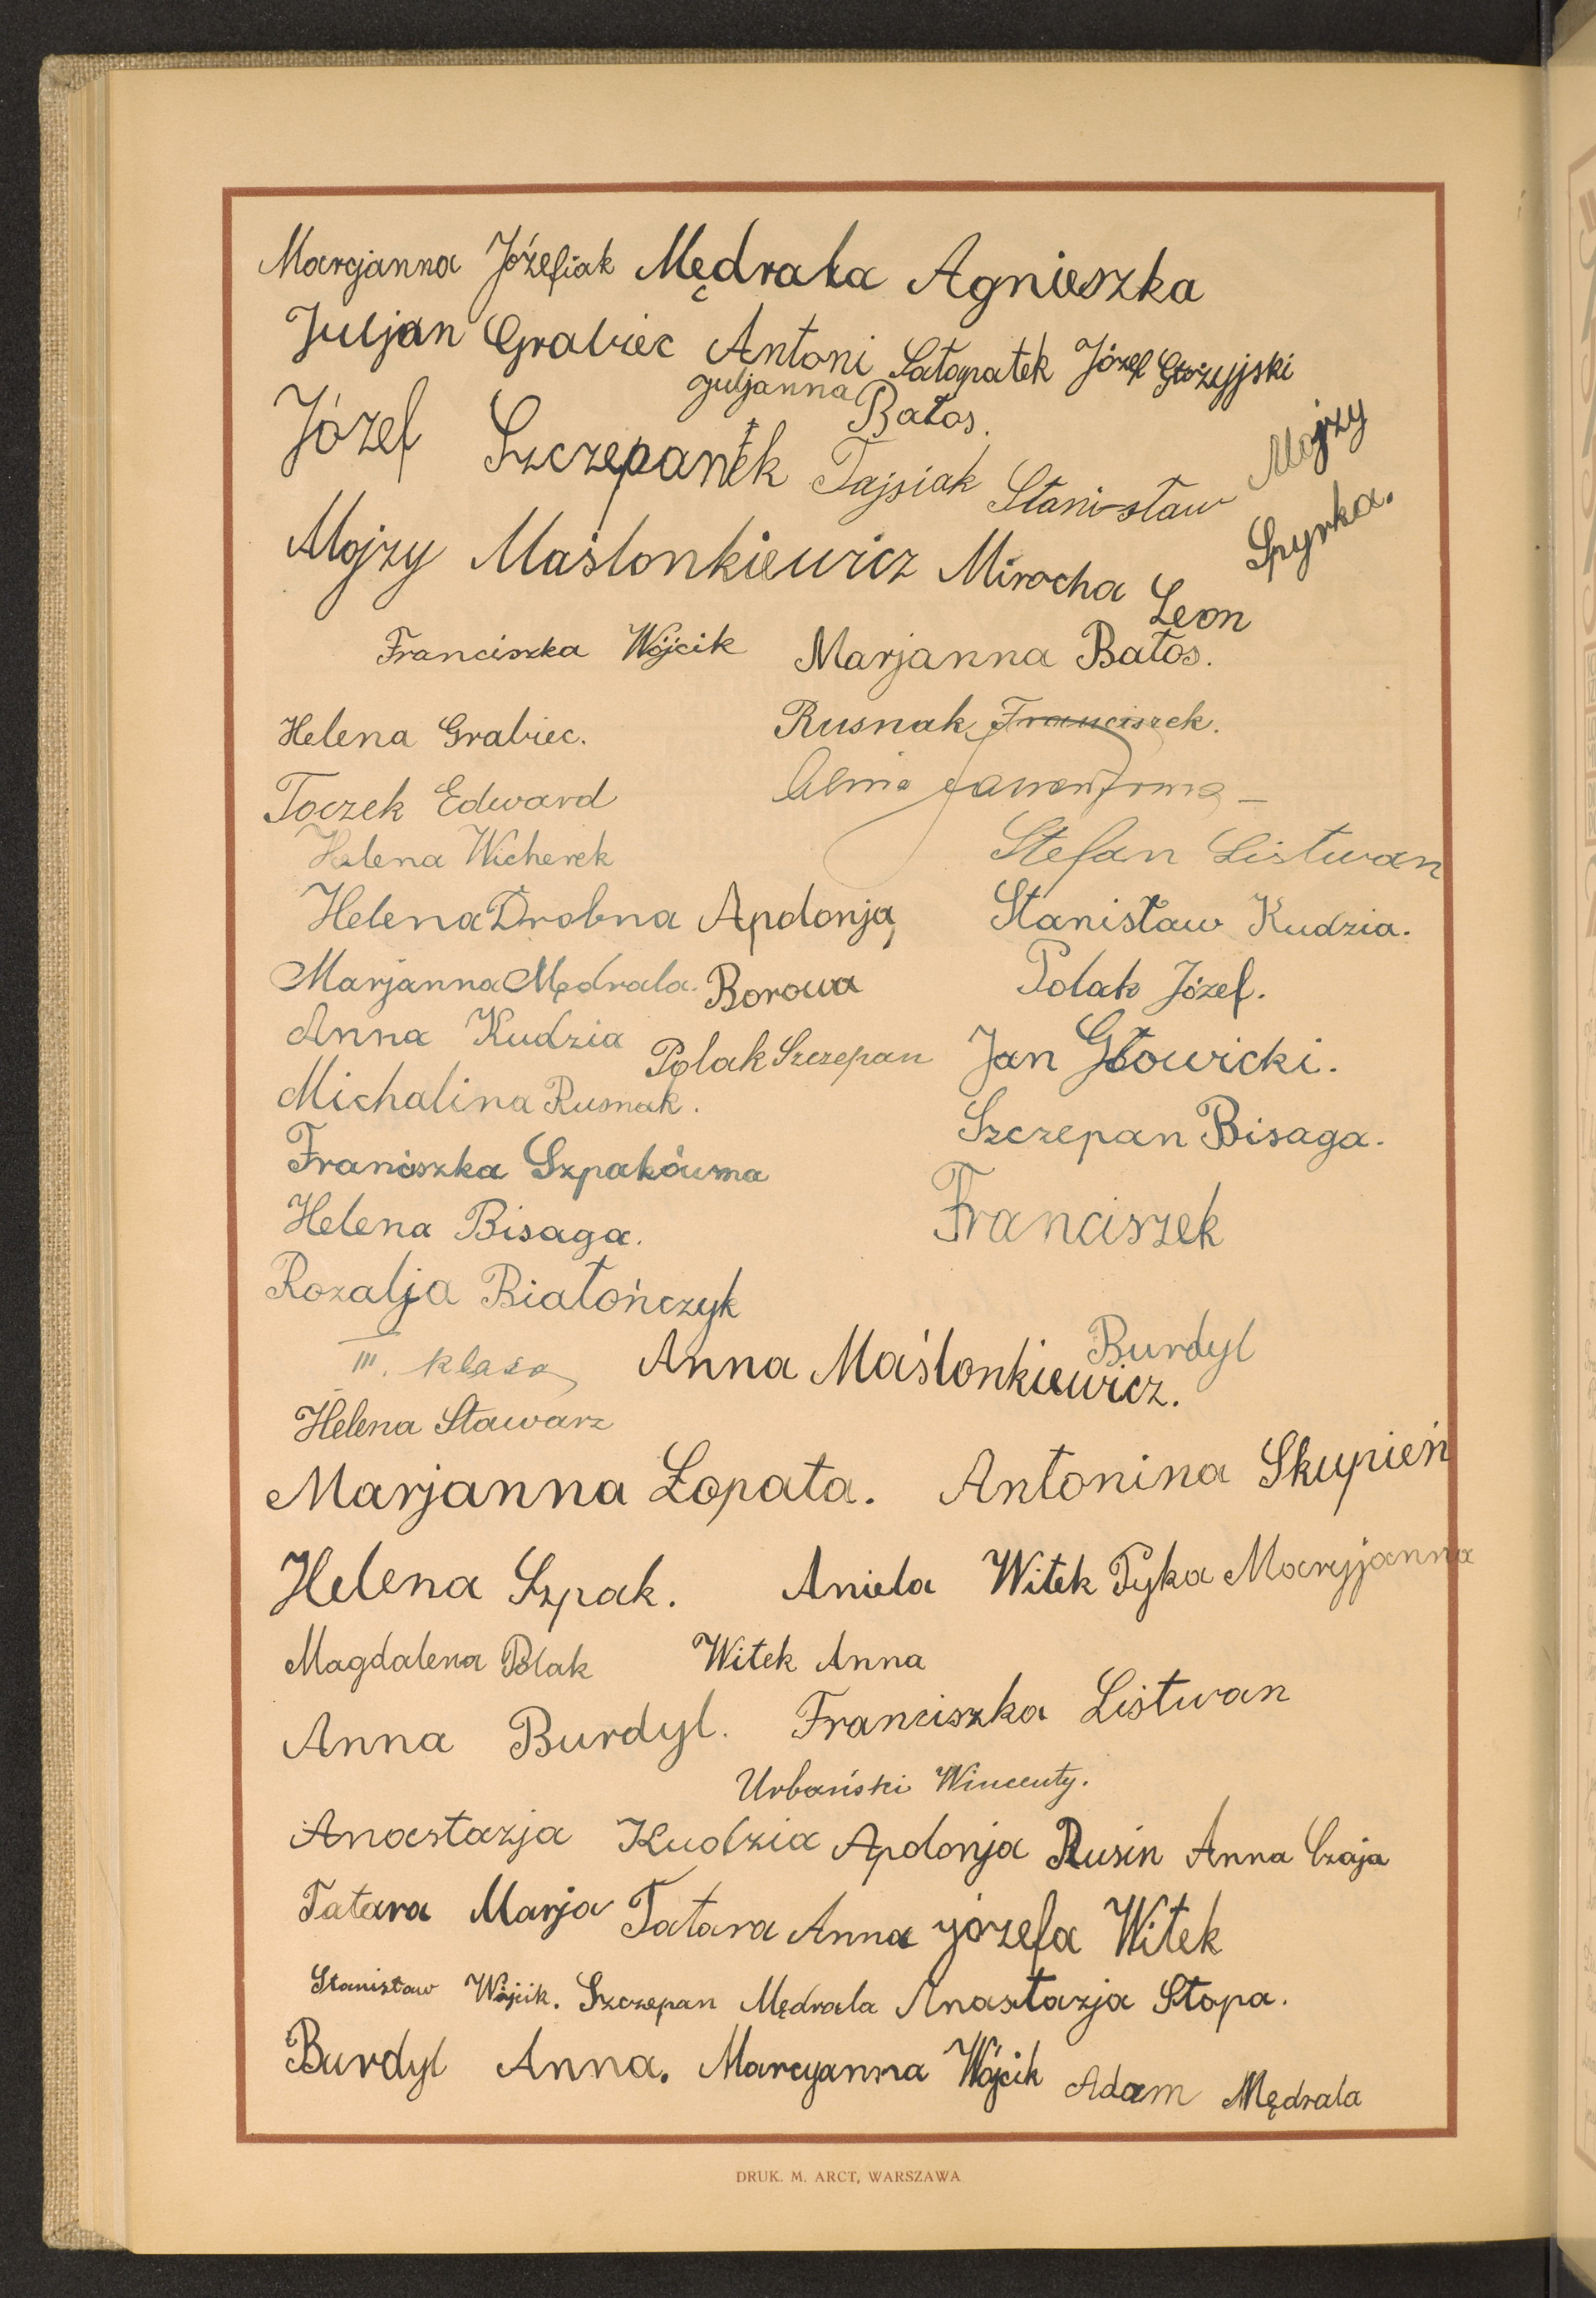 Marcjanna Józefiak Mędrala Agnieszka
Juljan Grabiec Antoni Satopatek Józef
Juljanna Bałos.
Józef Szczepanek Tajsiak Stanisław
Mojzy Szyrka.
Mojzy Maślonkiewicz Mirocha Leon
Franciszka Wójcik Marjanna Bałos.
Helena Grabiec. Rusnak Franciszek.
Toczek Edward
Helena Wicherek Stefan Listwan
Helena Drobna Apolonja Stanisław Kudzia.
Marjanna Mędrala. Borowa Polak Józef.
Anna Kudzia Polak Szczepan Jan Głowicki.
Michalina Rusnak. Szczepan Bisaga.
Franciszka Szpakówna
Helena Bisaga. Franciszek
Rozalja Białończyk Burdyl
III. klasa Anna Maślonkiewicz.
Helena Stawarz
Marjanna Łopata. Antonina Skupień
Helena Szpak. Aniela Witek Pyka Maryjanna
Magdalena Polak Witek Anna
Anna Burdyl. Franciszka Listwan
Urbański Wincenty.
Anastazja Kudzia Apolonja Rusin Anna Czaja
Tatara Marja Tatara Anna Józefa Witek
Stanisław Wójcik. Szczepan Mędrala Anastazja Stopa.
Burdyl Anna. Marcyanna Wójcik Adam Mędrala
DRUK. M. ARCT, WARSZAWA